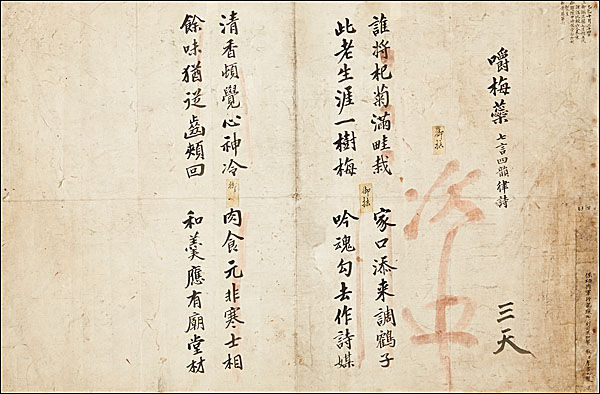 嚼梅蘂 七言四韻律詩
三天
次中
御抹
誰將杞菊滿畦栽
此老生涯一樹梅
御抹
家口添来調鶴子
吟魂勾去作詩媒
清香頓覺心神冷
餘味猶從齒頰回
肉食元非寒士相
和羹應有廟堂材